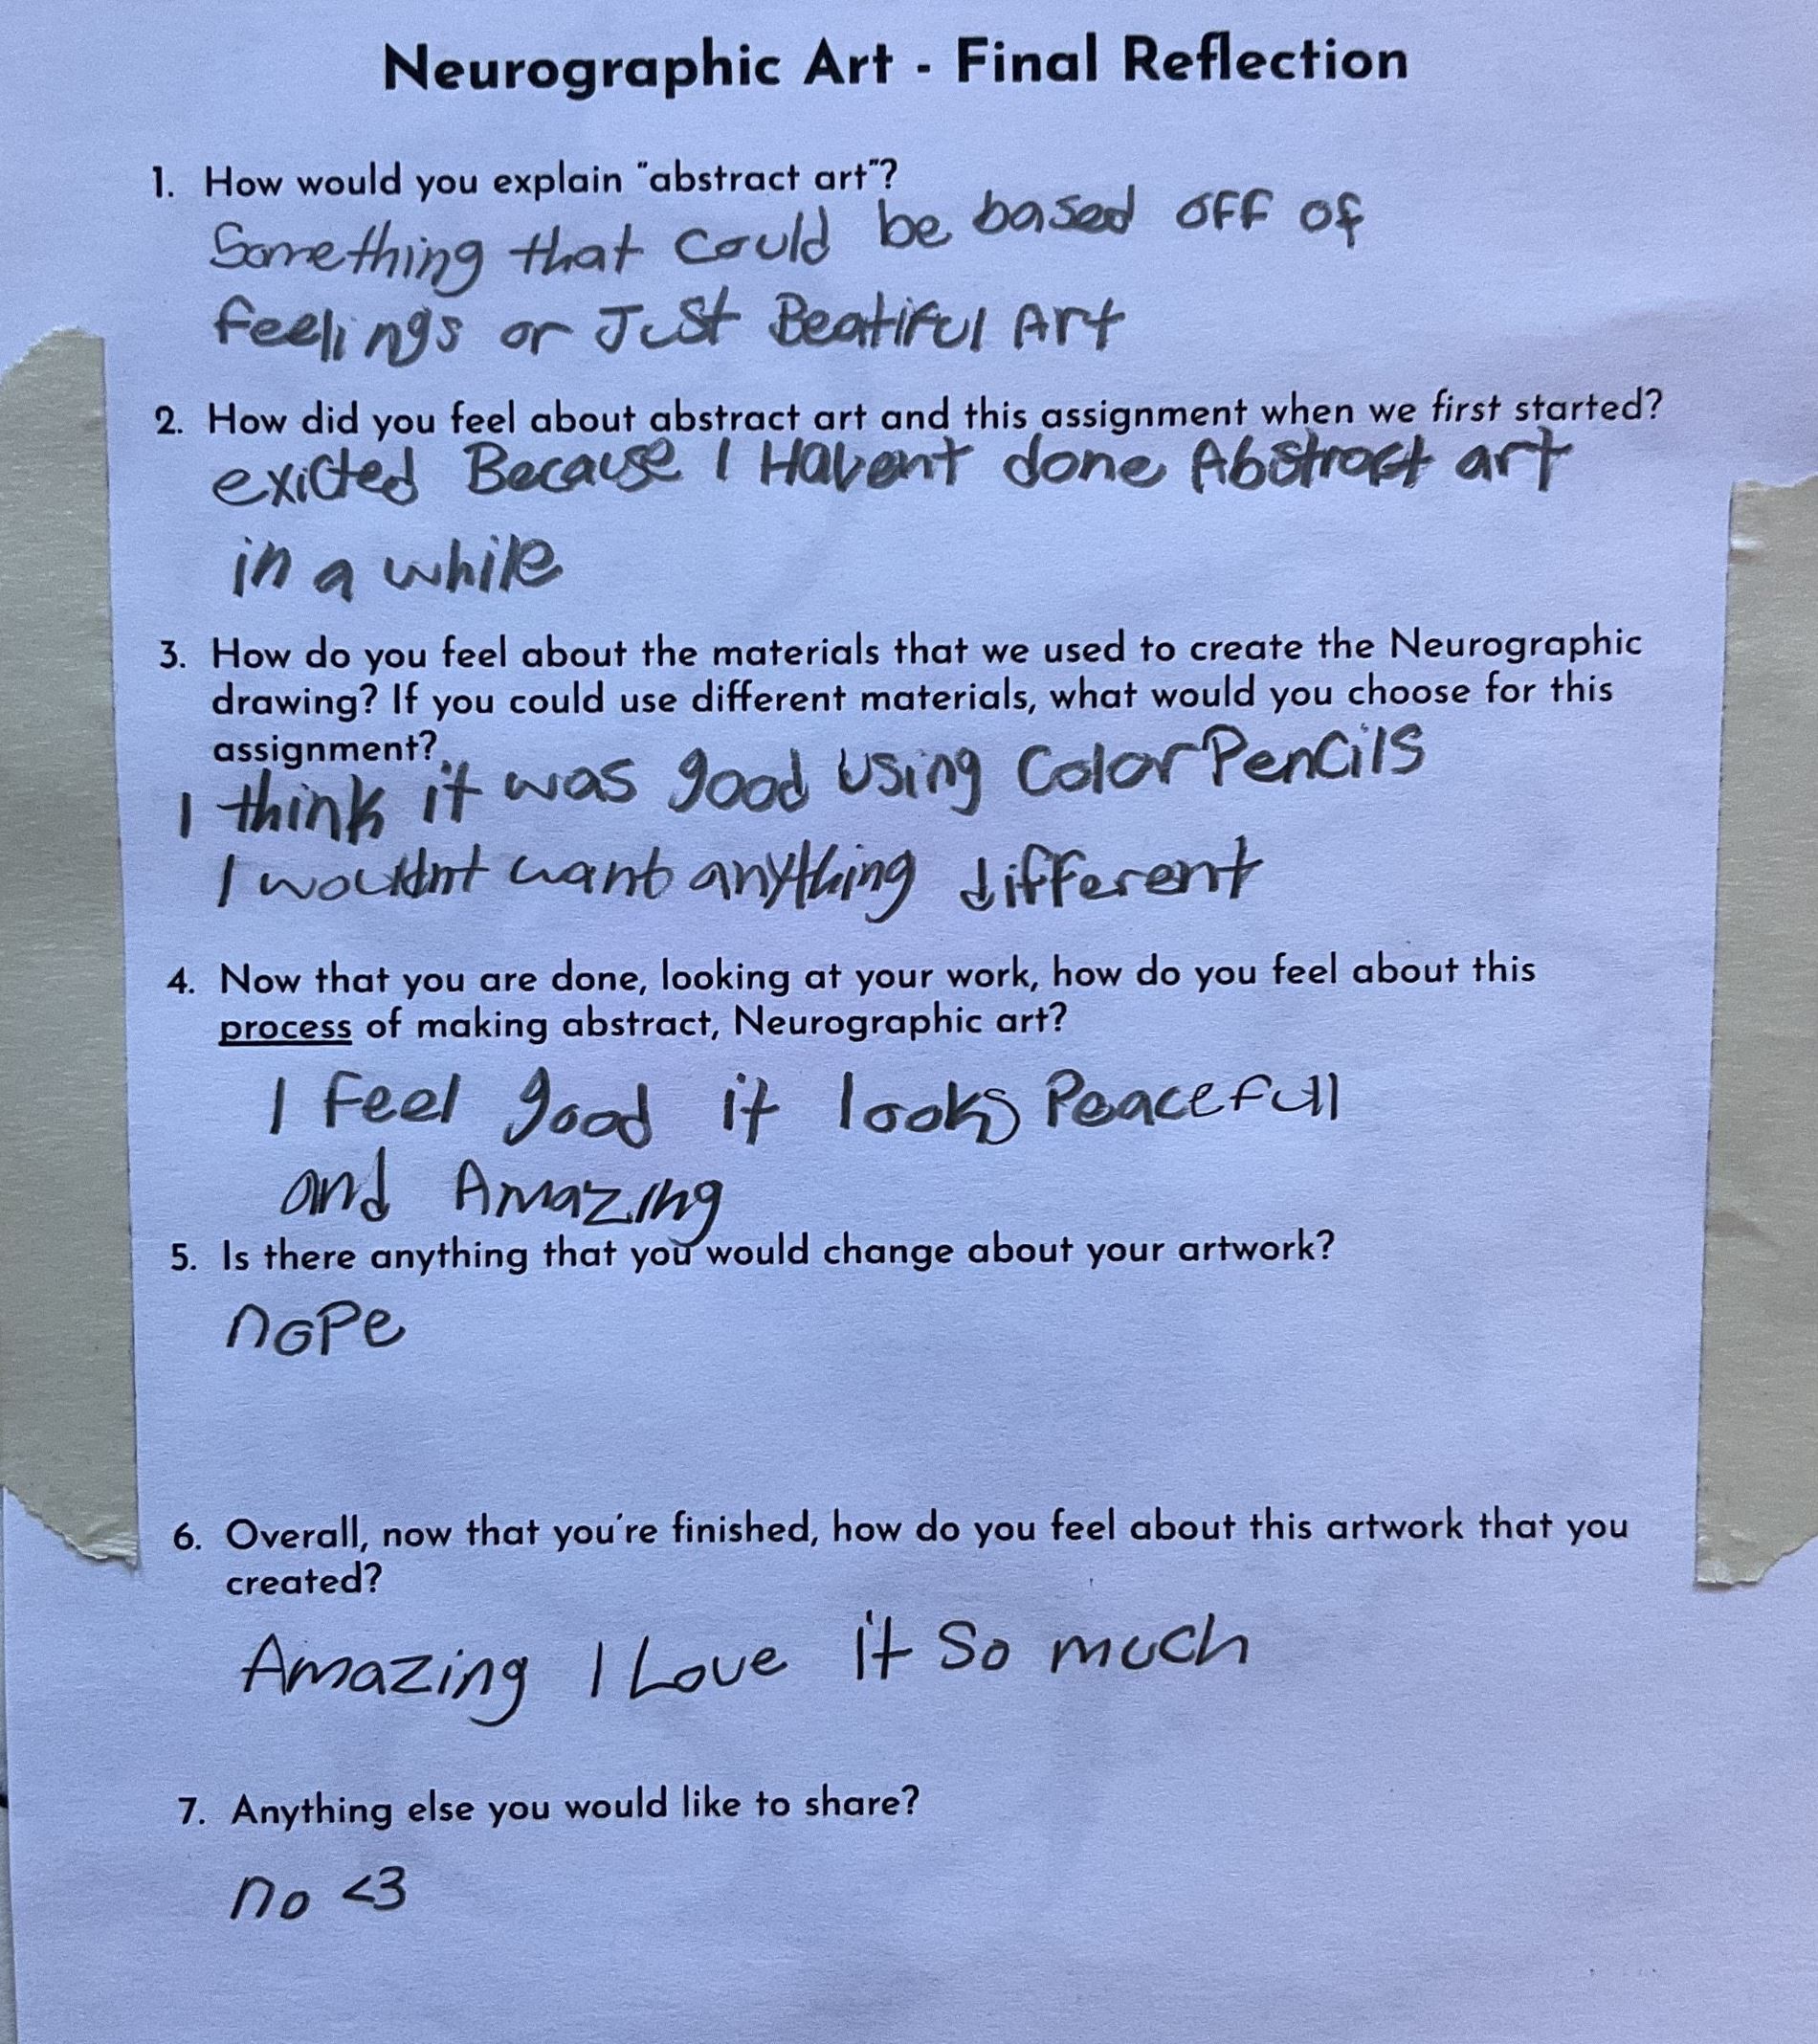 Neurographic Art - Final Reflection
1. How would you explain "abstract art"?
Something that could be based off of
feelings or Just Beatiful Art
2. How did you feel about abstract art and this assignment when we first started?
exicted Because I Havent done Abstract art
in a while
3. How do you feel about the materials that we used to create the Neurographic
drawing? If you could use different materials, what would you choose for this
assignment?
I think it was good using Color Pencils
I wouldnt want anything different
4. Now that you are done, looking at your work, how do you feel about this
process of making abstract, Neurographic art?
I Feel good it looks Peacefull
and Amazing
5. Is there anything that you would change about your artwork?
nope
6. Overall, now that you're finished, how do you feel about this artwork that you
created?
Amazing I Love it So much
7. Anything else you would like to share?
no <3